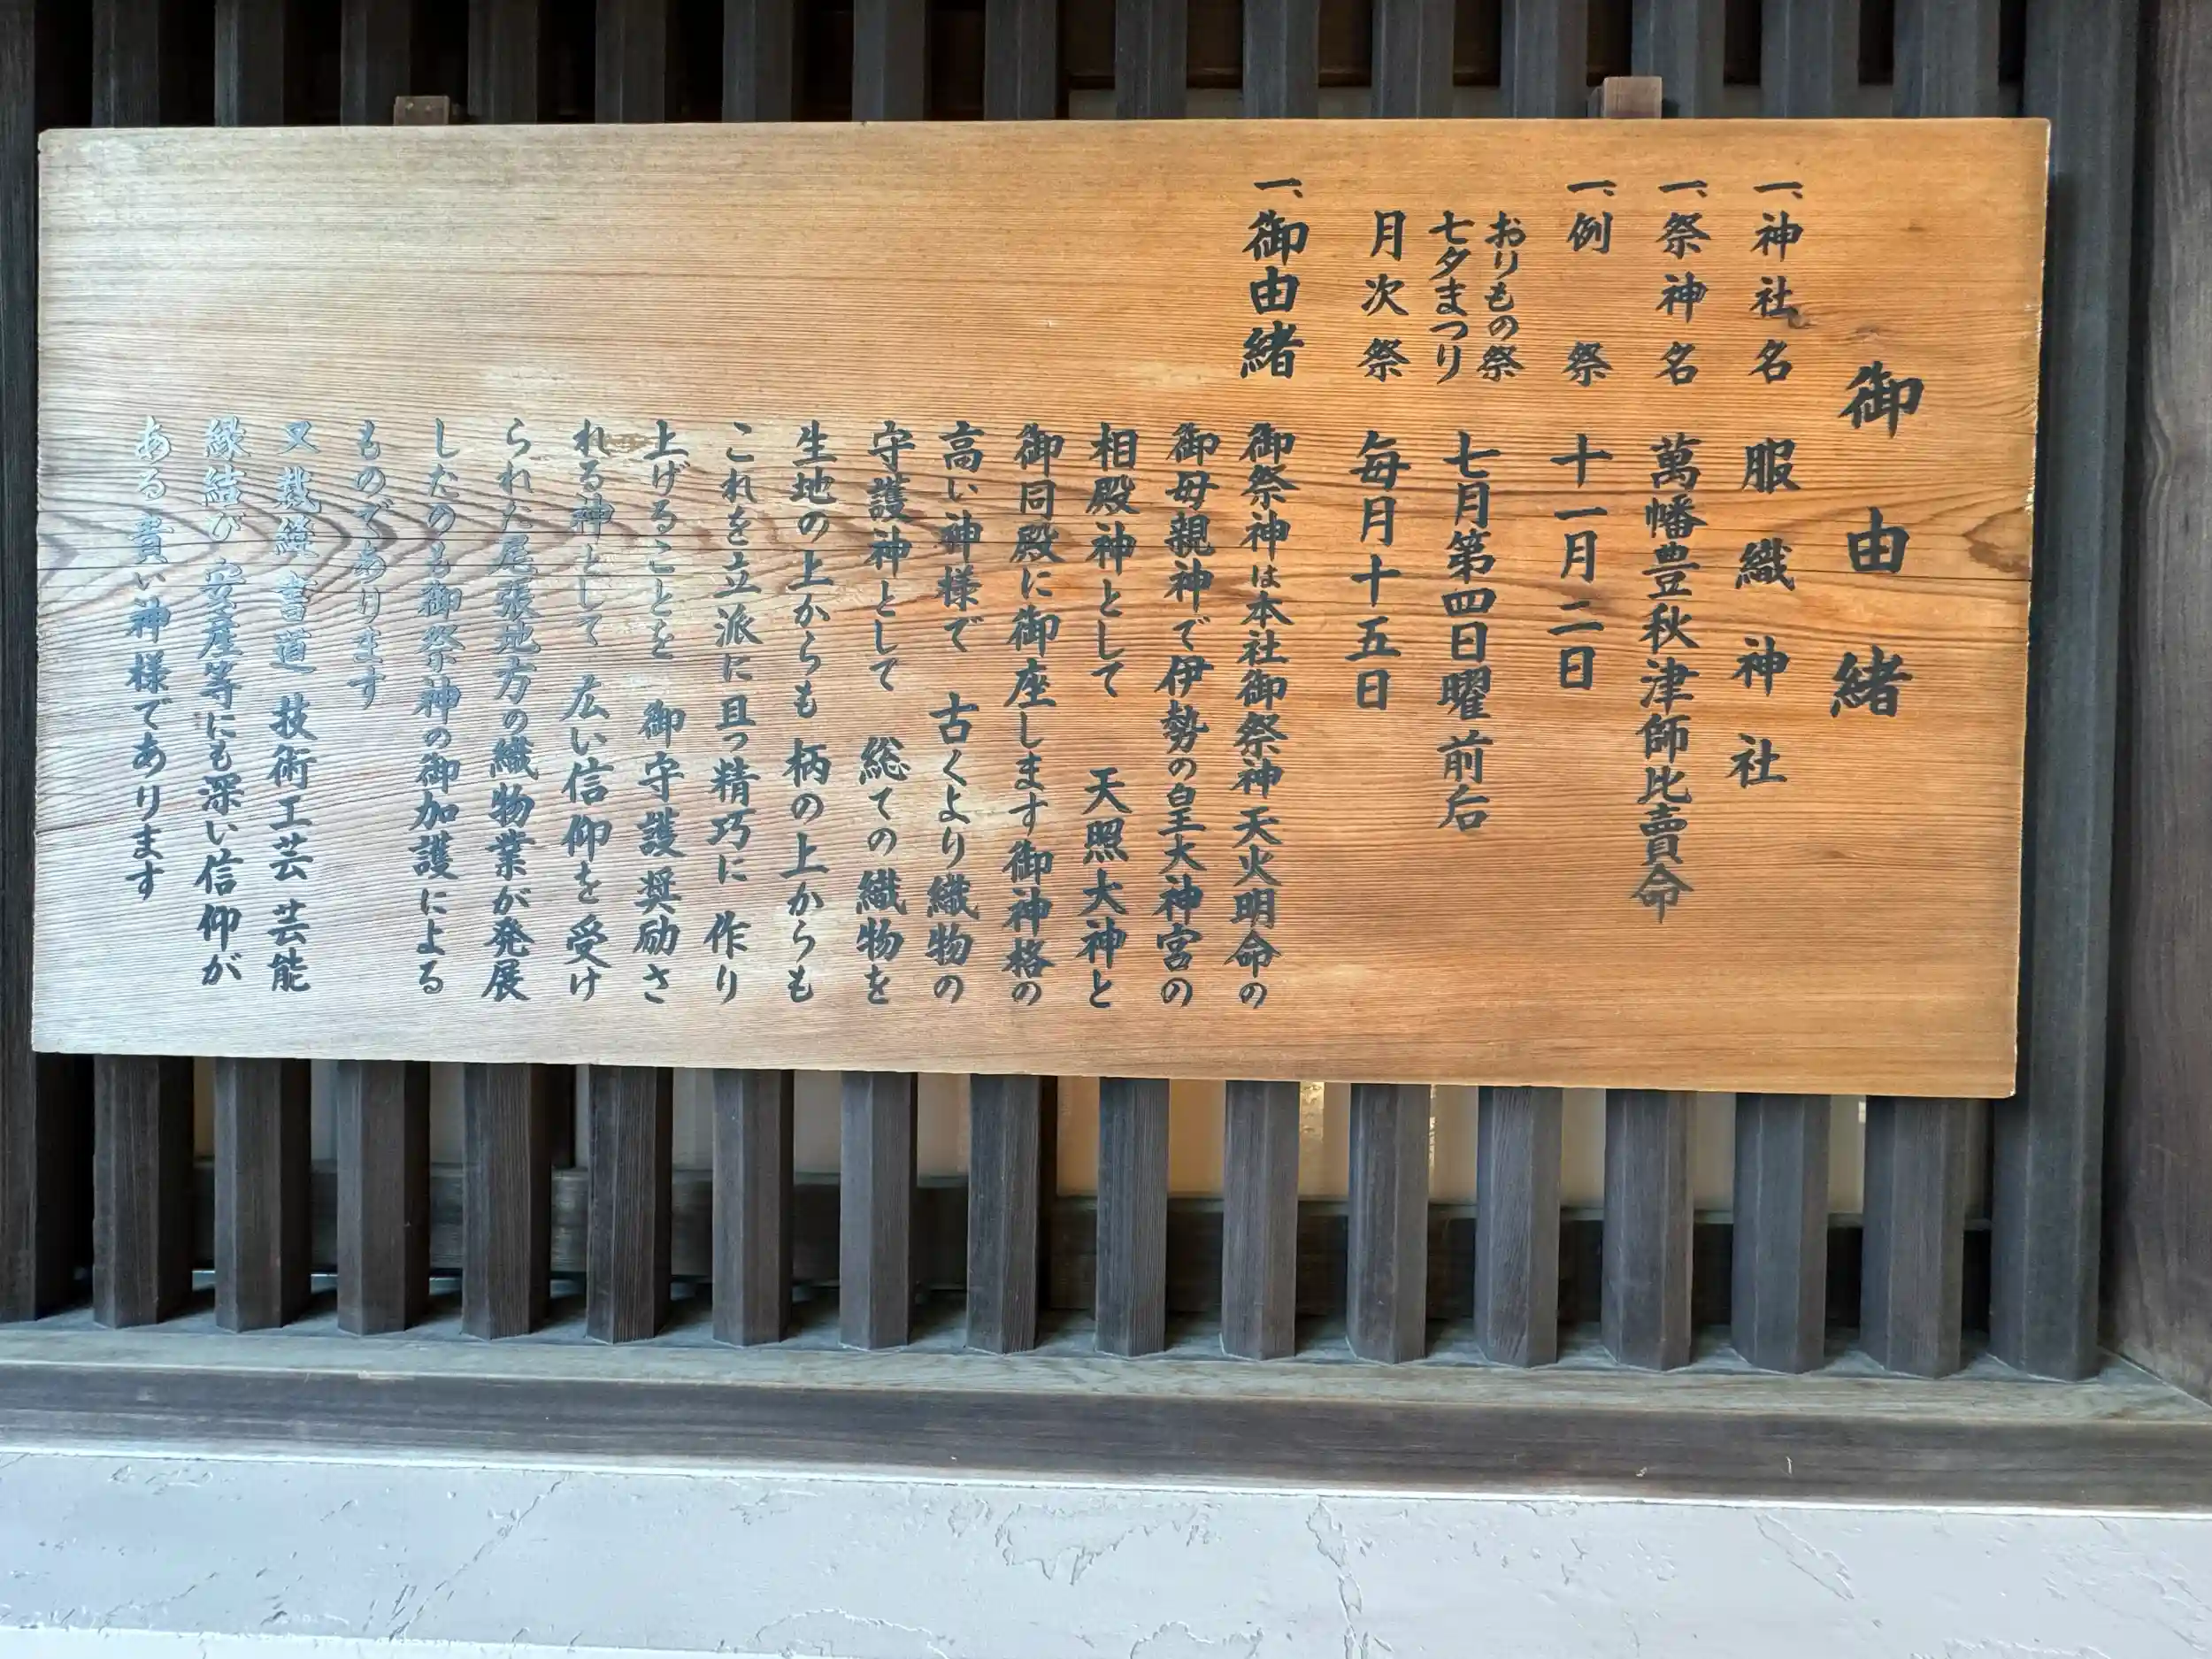 御由緒
一、神社名 服織神社
一、祭神名 萬幡豊秋津師比賣命
一、例祭 十一月二日
おりもの祭
七夕まつり 七月第四日曜前后
月次祭 毎月十五日
一、御由緒 御祭神は本社御祭神天火明命の
御母親神で伊勢の皇大神宮の
相殿神として 天照大神と
御同殿に御座します御神格の
高い神様で 古くより織物の
守護神として 総ての織物を
生地の上からも 柄の上からも
これを立派に且つ精巧に 作り
上げることを 御守護奨励さ
れる神として 広い信仰を受け
られた尾張地方の織物業が発展
したのも御祭神の御加護による
ものであります
又裁縫 書道 技術工芸 芸能
縁結び 安産等にも深い信仰が
ある貴い神様であります